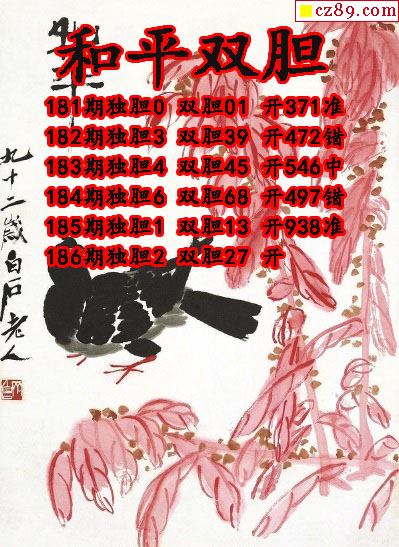 cz89.com
和平双胆
181期独胆0 双胆01 开371准
182期独胆3 双胆39 开472错
183期独胆4 双胆45 开546中
184期独胆6 双胆68 开497错
185期独胆1 双胆13 开938准
186期独胆2 双胆27 开
九十二岁白石老人